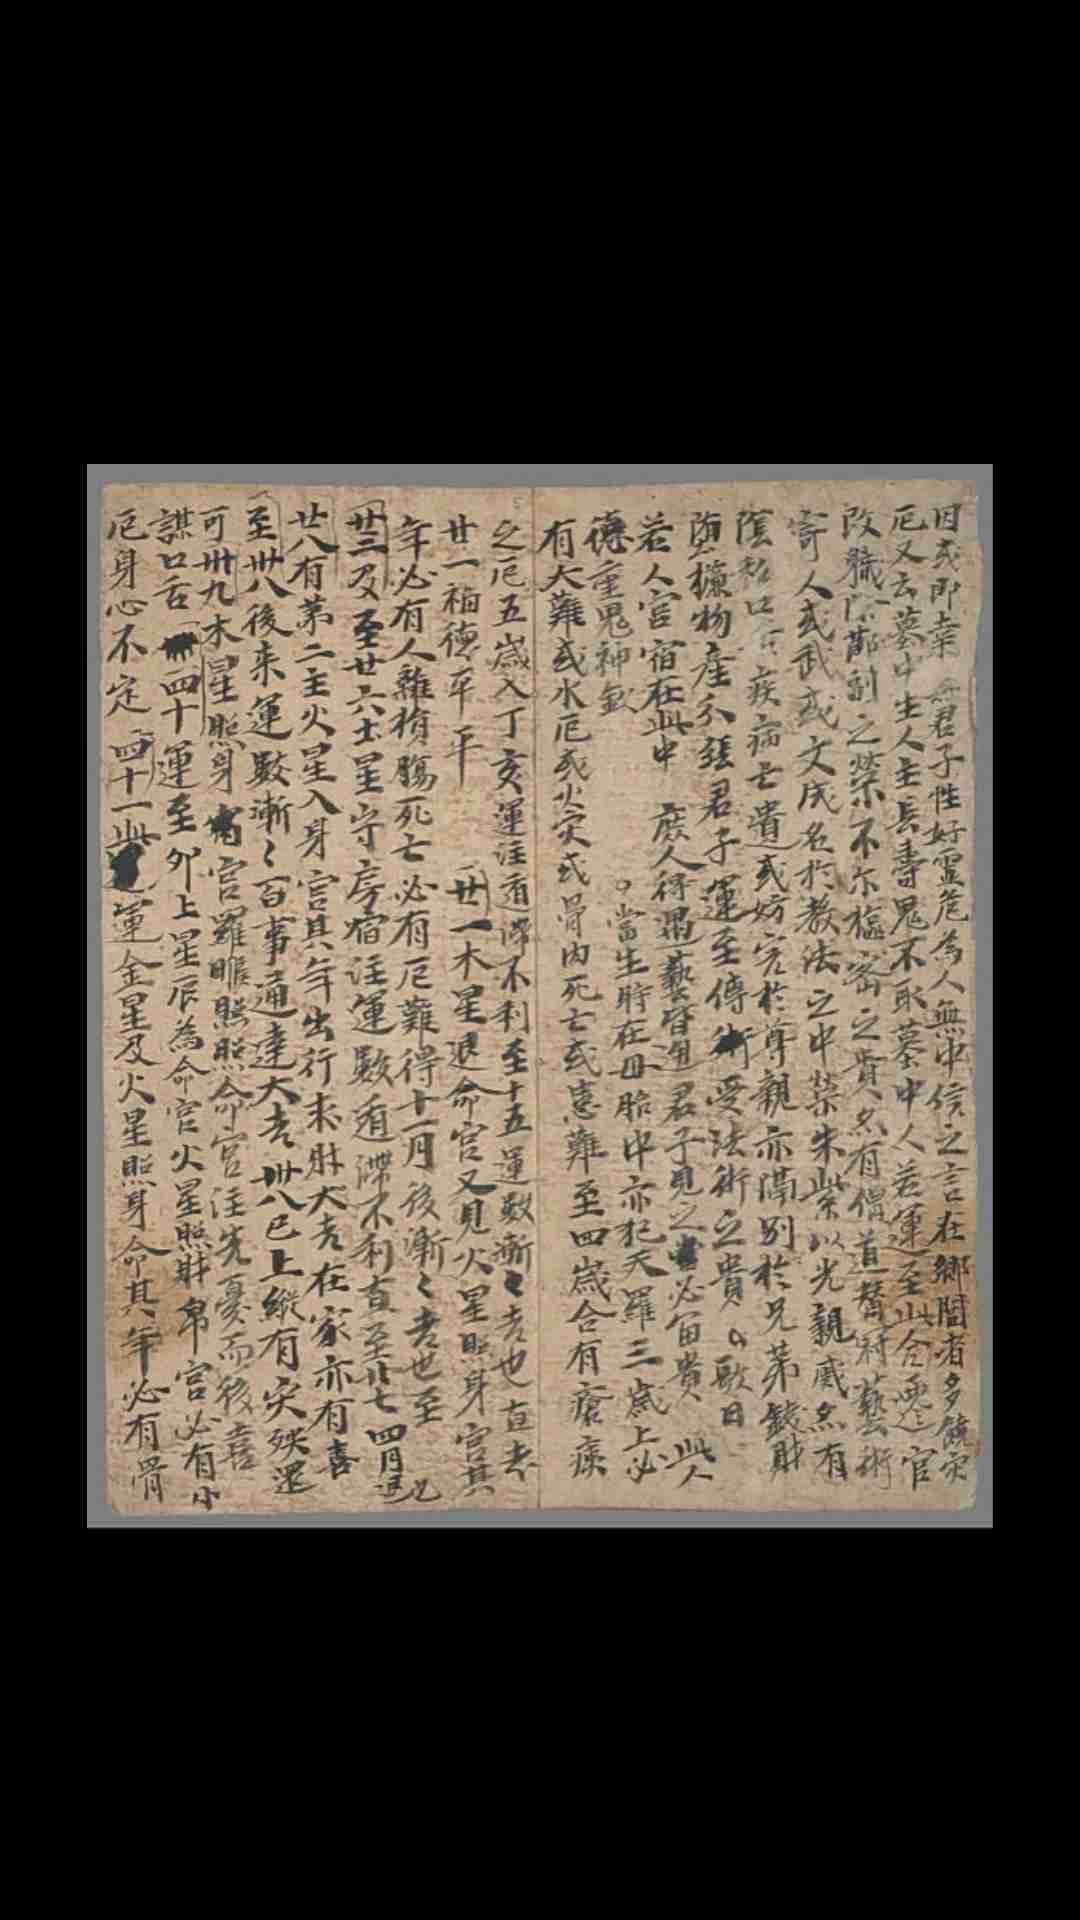 因或即幸 君子性好靈危為人無中信之言在鄉閭者多饒灾
厄又云墓中生人主長壽鬼不取墓中人若運至此合遷官
改職除 副之榮不尒樞密之貴亦有僧道醫 藝術
寄人或武或文成名於教法之中榮朱紫以光親戚亦有
陰私口舌疾病亡遺或妨害於尊親亦隔別於兄弟錢財
物產 君子運至傳術受法術之貴 歌曰
若人宮宿在此中 庶人得遇藝皆通 君子見之必富貴 此人
德重鬼神 當生時在母胎中亦犯天羅三歲上必
有大難或水厄或火灾或骨肉死亡或患難至四歲合有瘡
之厄五歲入丁亥運注 滯不利至十五運數漸〻吉也直去
廿一福德平平 廿一木星退命宮又見火星照身宮其
年必有人離損傷死亡必有厄難得十一月後漸〻吉世至
廿三及至廿六土星守房宿注運數 滯不利直至廿七四月
廿八有第二主火星入身宮其年出行求財大吉在家亦有喜
至卅八後来運數漸〻百事通達大吉卅八已上縱有灾殃還
可卅九木星照身宮羅睺照照命宮注先憂而後喜
謀口舌 四十運至卯上星辰為命宮火星照財帛宮必有小
厄身心不定 四十一此運金星及火星照身命其年必有骨